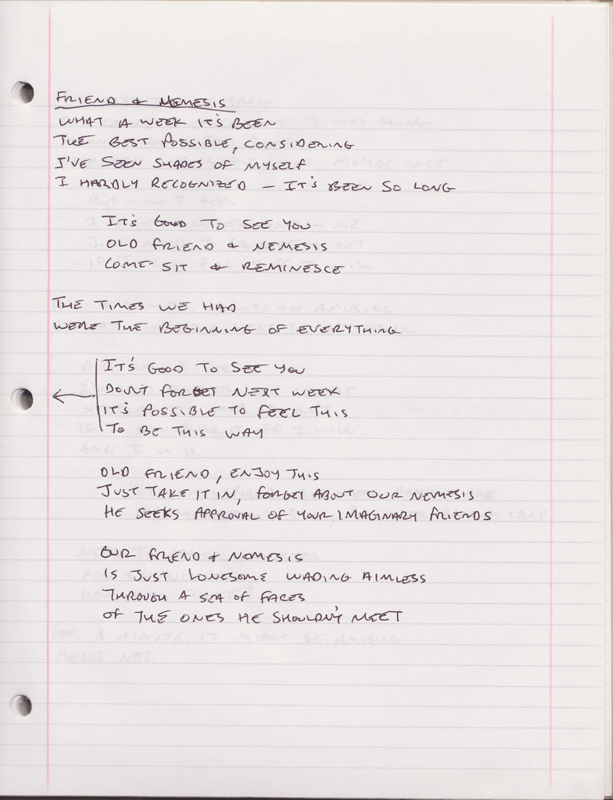 FRIEND & NEMESIS
WHAT A WEEK IT'S BEEN
THE BEST POSSIBLE, CONSIDERING
I'VE SEEN SHADES OF MYSELF
I HARDLY RECOGNIZED - IT'S BEEN SO LONG
IT'S GOOD TO SEE YOU
OLD FRIEND & NEMESIS
COME SIT & REMINESCE
THE TIMES WE HAD
WERE THE BEGINNING OF EVERYTHING
IT'S GOOD TO SEE YOU
DON'T FORGET NEXT WEEK
IT'S POSSIBLE TO FEEL THIS
TO BE THIS WAY
OLD FRIEND, ENJOY THIS
JUST TAKE IT IN, FORGET ABOUT OUR NEMESIS
HE SEEKS APPROVAL OF YOUR IMAGINARY FRIENDS
OUR FRIEND & NOMESIS
IS JUST LONESOME WADING AIMLESS
THROUGH A SEA OF FACES
OF THE ONES HE SHOULDN'T MEET